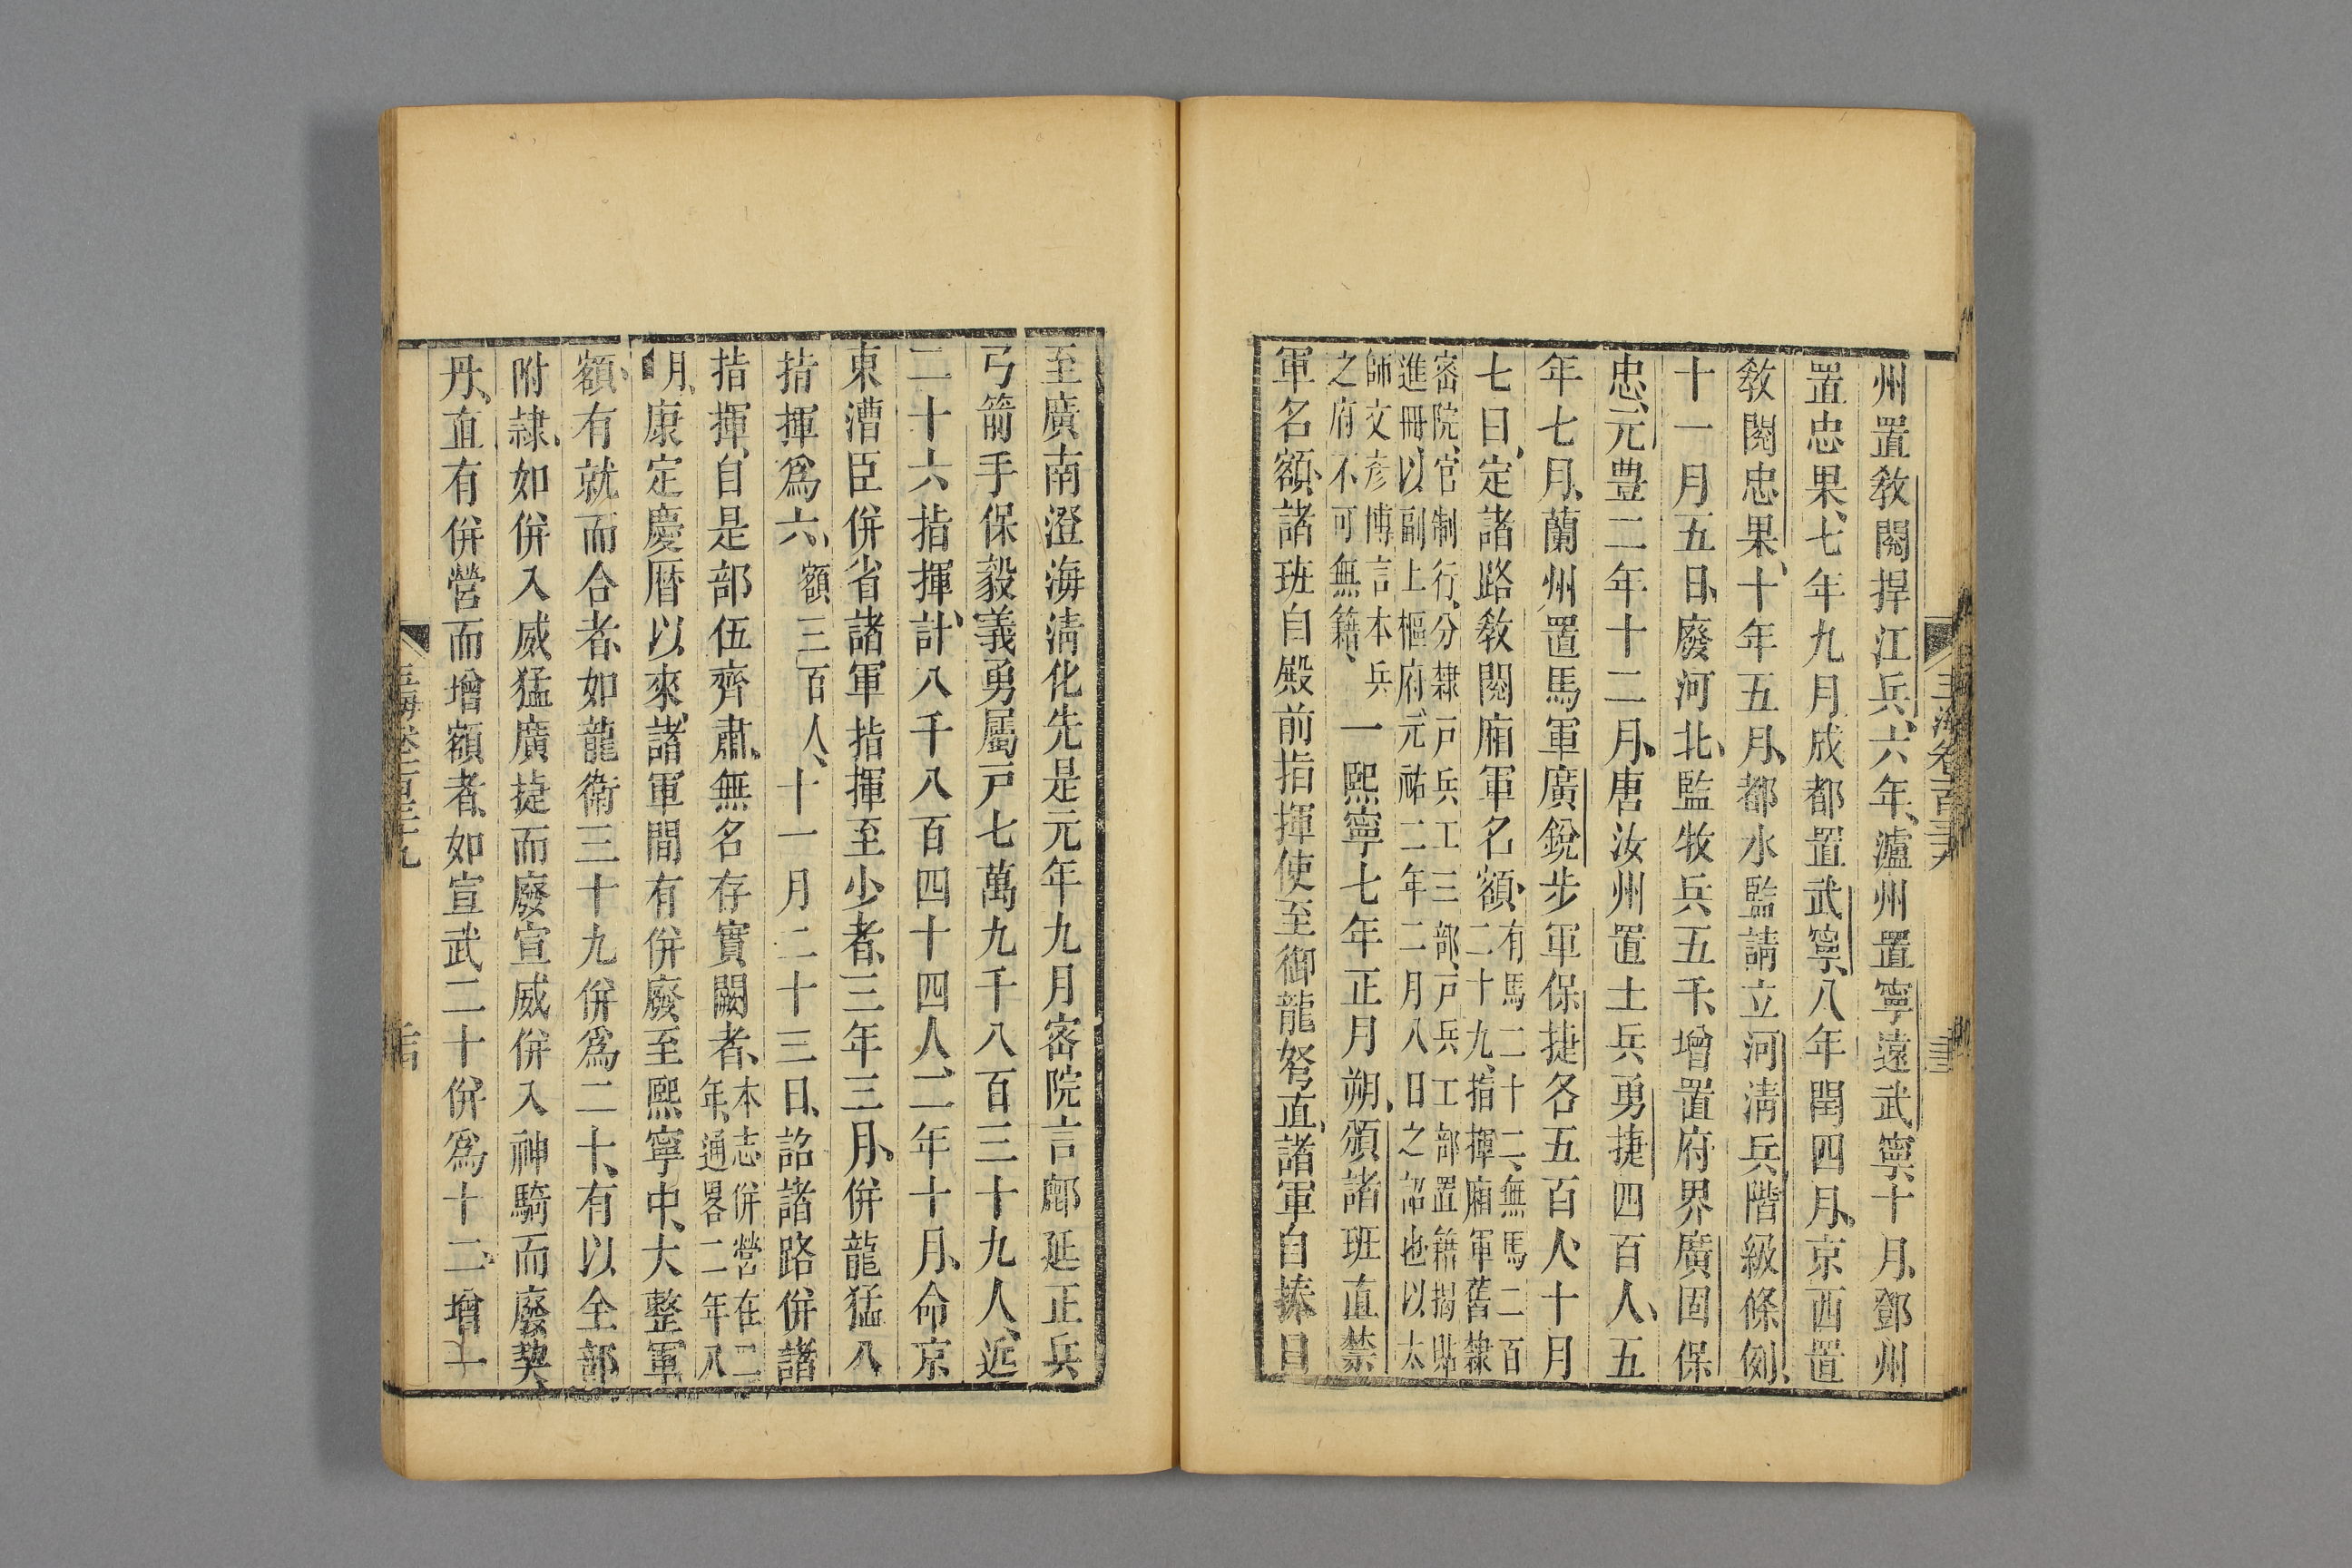 州置敎閱捍江兵、六年、瀘州置寧遠武寧、十月、鄧州
置忠果、七年九月成都置武寧、八年閏四月、京西置
敎閱忠果、十年五月、都水監請立河淸兵、階級條例、
十一月五日、廢河北、監牧兵五千、增置府界廣固保
忠、元豊二年十二月、唐汝州置土兵勇捷四百人、五
年七月、蘭州置馬軍廣銳步軍保捷各五百人、十月
七日、定諸路敎閱廂軍名額、有馬二十二、無馬二百
二十九、指揮廂軍舊隸
密院、官制行、分隸戸兵工三部、戸兵工部置籍揭貼
進冊、以副上樞府、元祐二年二月八日之詔也以太
師文彥博言本兵
之府不可無籍、一熙寧七年正月朔、頒諸班直禁
軍名額、諸班自殿前指揮使至御龍弩直、諸軍自捧日
至廣南澄海淸化先是元年九月密院言鄜延正兵
弓箭手保毅義勇屬戸七萬九千八百三十九人、近
二十六指揮、計八千八百四十四人、二年十月、命京
東漕臣併省諸軍指揮至少者、三年三月、併龍猛八
指揮爲六、額三百人、十一月二十三日、詔諸路併諸
指揮、自是部伍齊肅、無名存實闕者、本志併營在二
年、通畧二年八
月、康定慶曆以來、諸軍間有併廢、至熙寧中、大整軍
額、有就而合者、如龍衛三十九併爲二十、有以全部
附隷、如併入威猛廣捷而廢宣威併入神騎而廢契
丹、直有併營而增額者、如宣武二十併爲十二、增十